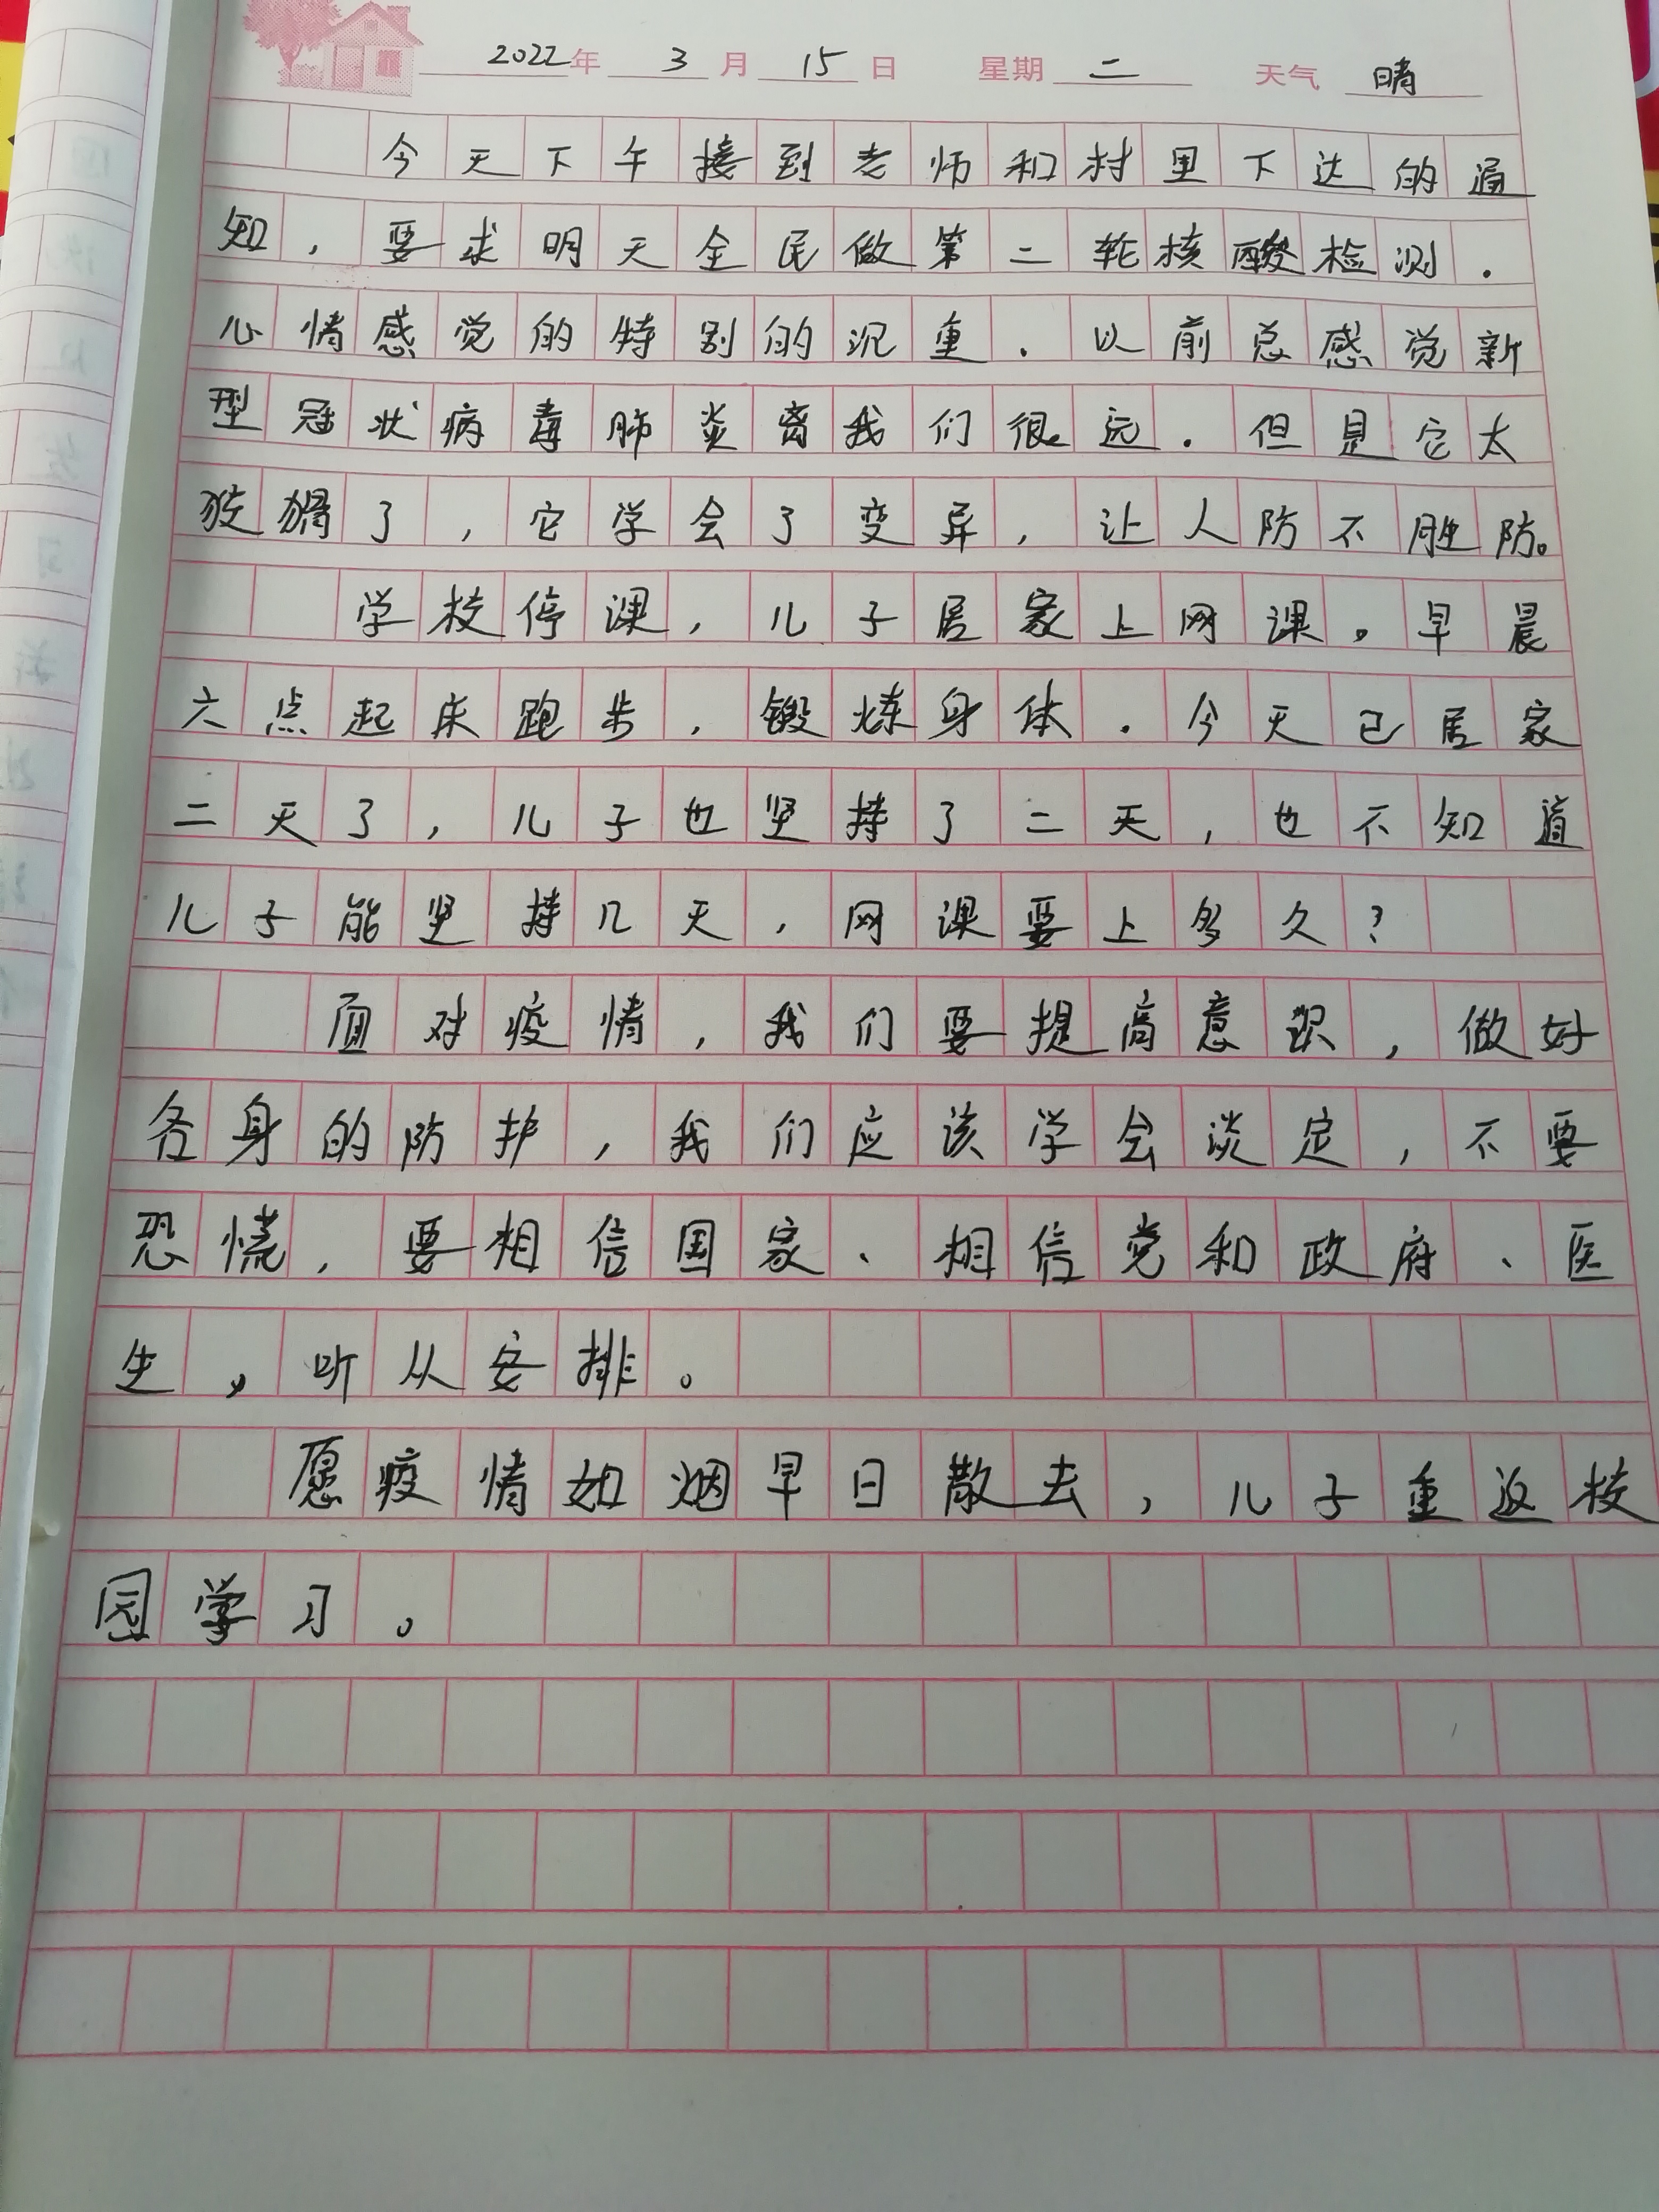 2022年 3月 15日 星期 二 天气 晴
今天下午接到老师和村里下达的通
知，要求明天全民做第二轮核酸检测.
心情感觉的特别的沉重.以前总感觉新
型冠状病毒肺炎离我们很远.但是它太
狡猾了，它学会了变异，让人防不胜防。
学校停课，儿子居家上网课。早晨
六点起床跑步，锻炼身体.今天已居家
二天了，儿子也坚持了二天，也不知道
儿子能坚持几天，网课要上多久?
面对疫情，我们要提高意识，做好
各身的防护，我们应该学会淡定，不要
恐慌，要相信国家、相信党和政府、医
生，听从安排。
愿疫情如烟早日散去，儿子重返校
园学习。